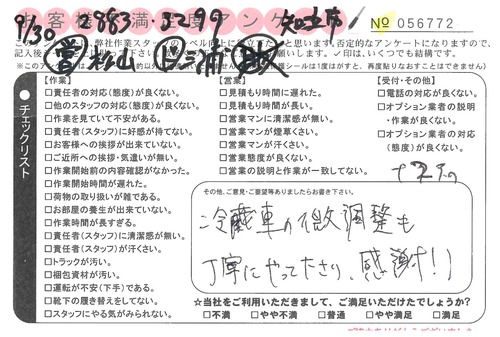 9/30 2883 2299 知立市
お客様満足度アンケ
№ 056772
ご記入後
弊社作業スタッフ
と思います。否定的なアンケートになりますので、
いします。✓印は、いくつでも結構です。
保護シールは1度はがすと、再度貼りなおすことはできません。
杉山 三浦
チェックリスト
【作業】
□責任者の対応(態度)が良くない。
□他のスタッフの対応(態度)が良くない。
□作業を見ていて不安がある。
□責任者(スタッフ)に好感が持てない。
□お客様への挨拶が出来ていない。
□ご近所への挨拶・気遣いが無い。
□作業開始前の内容確認がなかった。
□作業開始時間が遅れた。
□荷物の取り扱いが雑である。
□お部屋の養生が出来ていない。
□作業時間が長すぎる。
□責任者(スタッフ)に清潔感が無い。
□責任者(スタッフ)が汗くさい。
□トラックが汚い。
□梱包資材が汚い。
□運転が不安(下手)である。
□靴下の履き替えをしてない。
□スタッフにやる気がみられない。
【営業】
□見積もり時間に遅れた。
□見積もり時間が長い。
□営業マンに清潔感が無い。
□営業マンが煙草くさい。
□営業マンが汗くさい。
□営業態度が良くない。
□営業の説明と作業が一致してない。
【受付・その他】
□電話の対応が良くない。
□オプション業者の説明
・作業が良くない。
□オプション業者の対応
(態度)が良くない。
その他、ご意見・ご要望等ありましたらお書き下さい。
冷蔵庫の微調整も
丁寧にやって下さり、感謝!!
☆当社をご利用いただきまして、ご満足いただけたでしょうか?
□不満 □やや不満 □普通 □やや満足 □満足